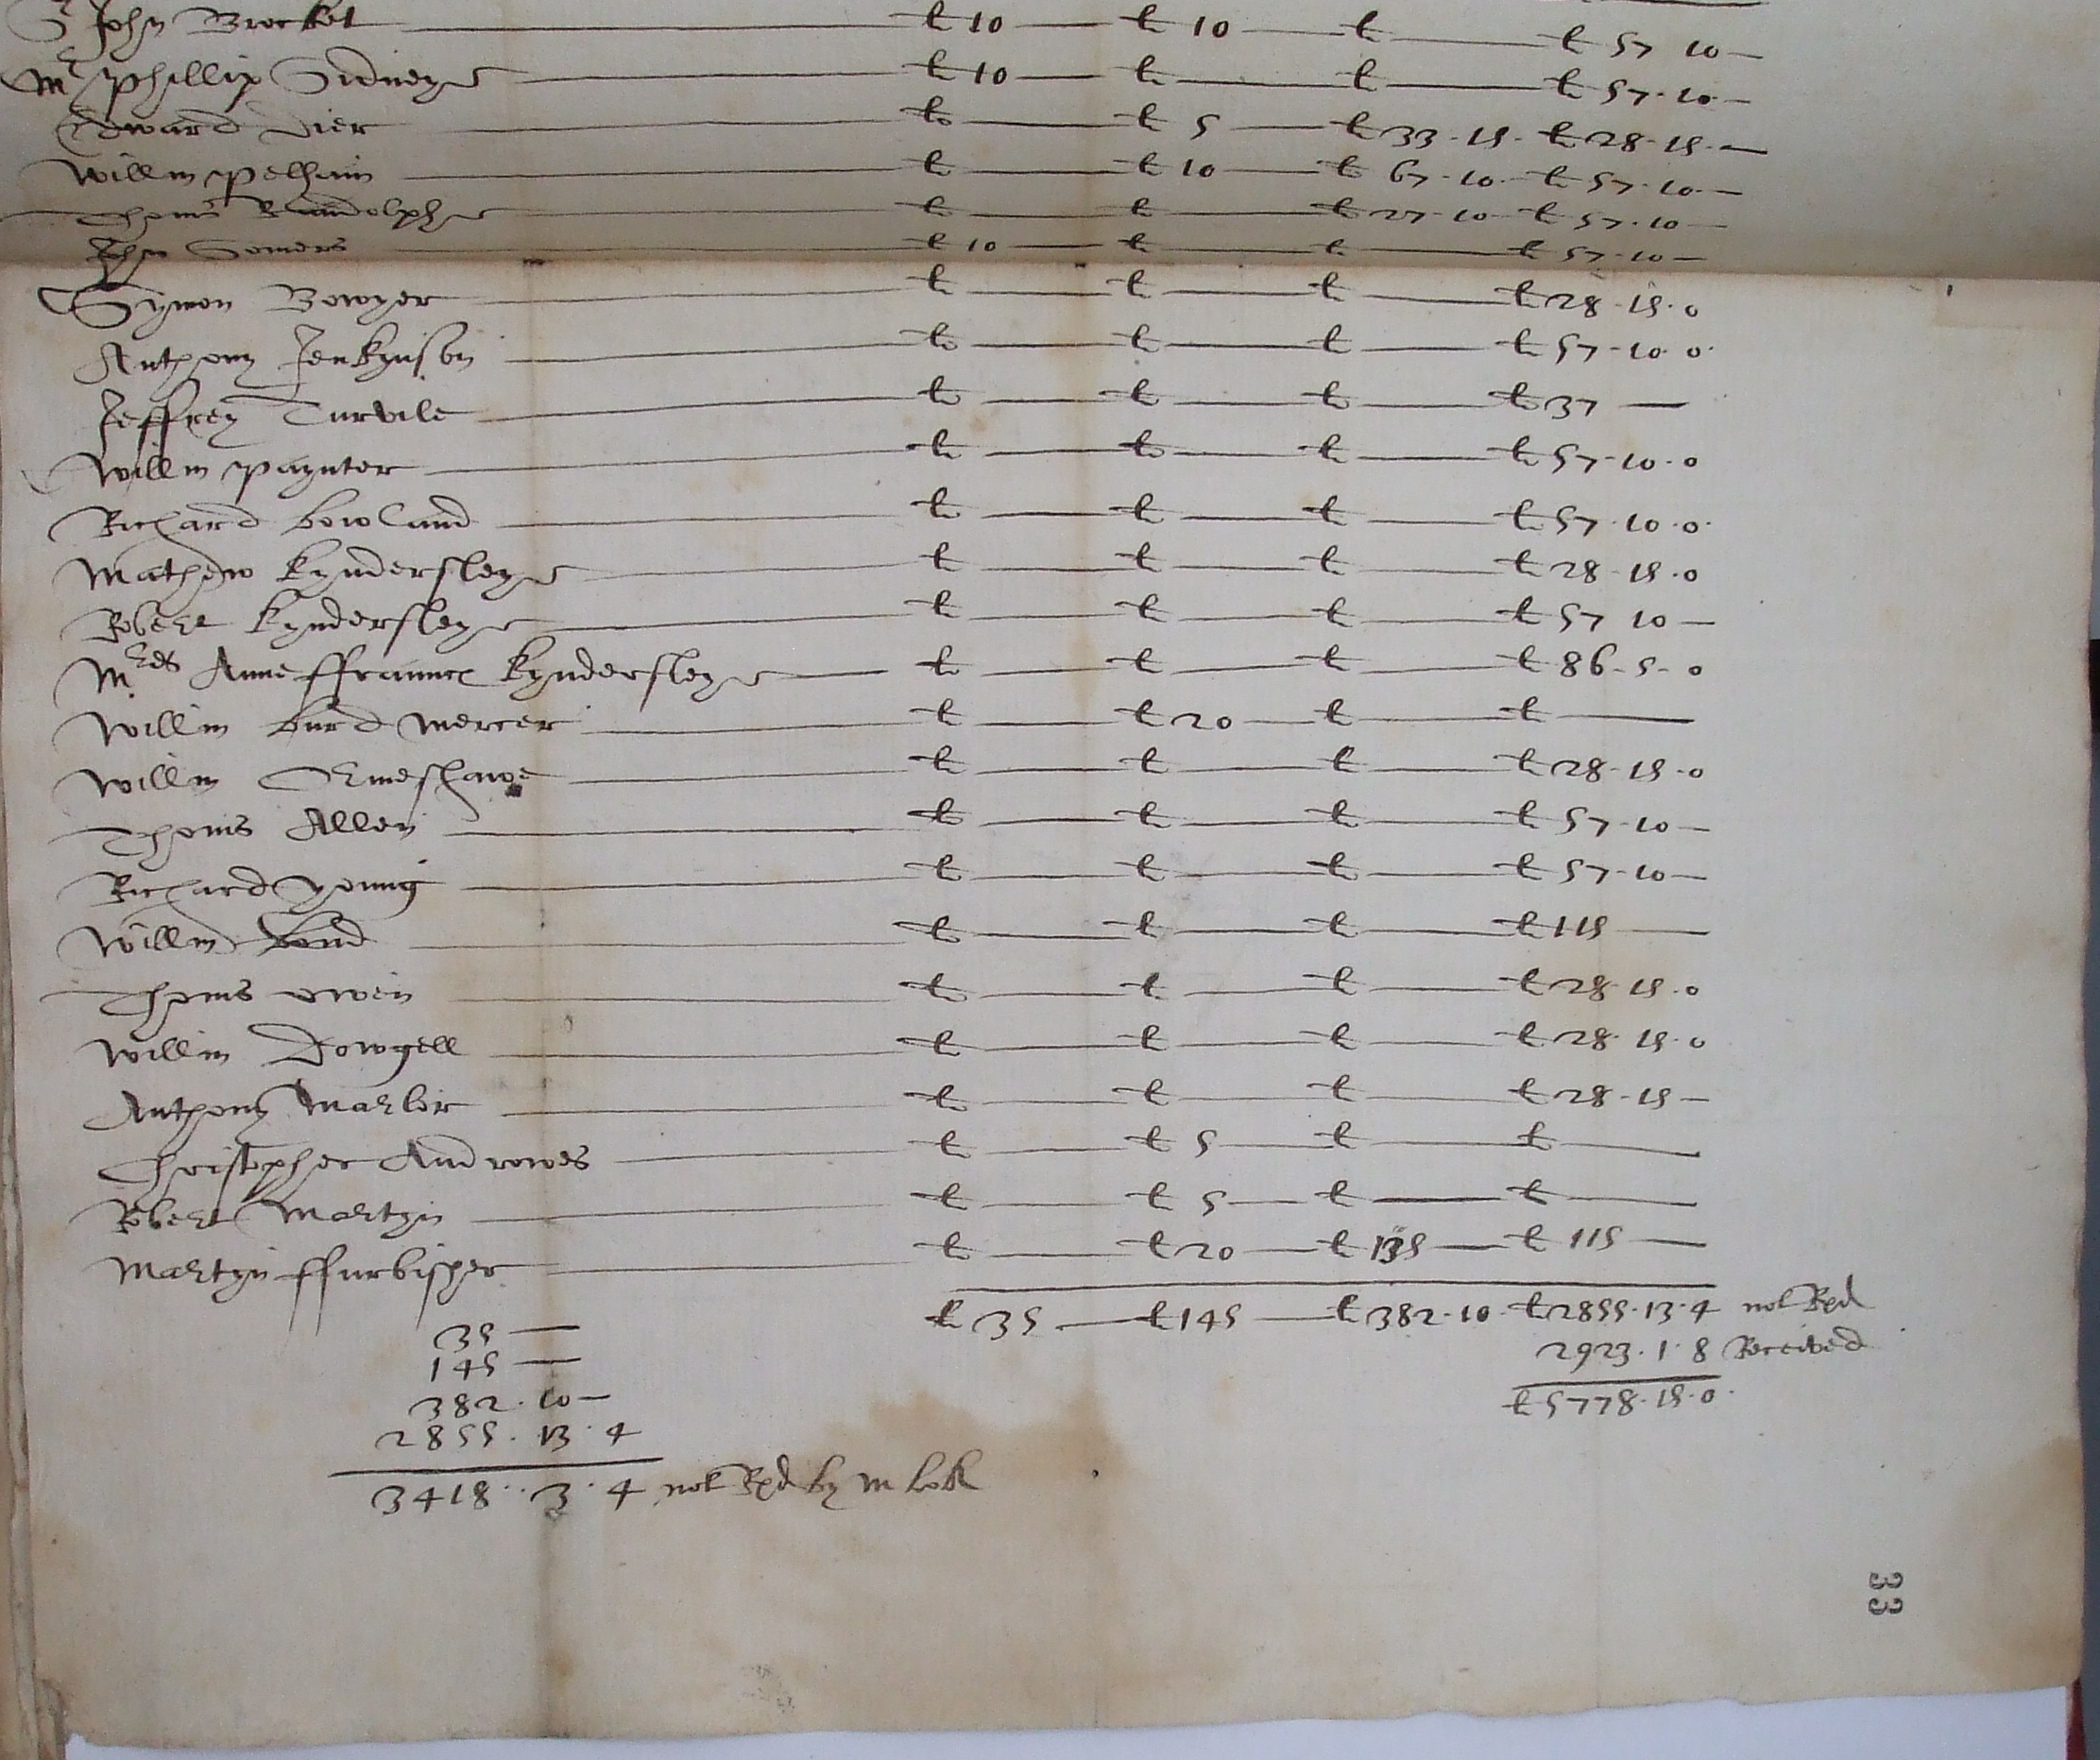 Sr John Brocket — £ 10 — £ 10 — £ — £ 57 10 —
Mr Phillip Sidney — £ 10 — £ — £ — £ 57 . 10 . —
Edward Dier — £ — £ 5 — £ 33 . 15 . £ 28 . 15 . —
Willm Pelham — £ — £ 10 — £ 67 . 10 . £ 57 . 10 . —
Thoms Randolphe — £ — £ — £ 27 . 10 £ 57 . 10 —
Jhn Somers — £ 10 — £ — £ — £ 57 . 10 —
Symon Bowyer — £ — £ — £ — £ 28 . 15 . 0
Anthony Jenkynson — £ — £ — £ — £ 57 . 10 . 0
Jeffrey Turvile — £ — £ — £ — £ 37 —
Willm paynter — £ — £ — £ — £ 57 . 10 . 0
Richard bowland — £ — £ — £ — £ 57 . 10 . 0
Mathew kyndersley — £ — £ — £ — £ 28 . 15 . 0
Robert kyndersley — £ — £ — £ — £ 57 10 —
Mres Anne ffrancs kyndersley — £ — £ — £ — £ 86 . 5 . 0
Willm burd mercer — £ — £ 20 — £ — £ —
Willm Ormeshawe — £ — £ — £ — £ 28 . 15 . 0
Thoms Allen — £ — £ — £ — £ 57 . 10 —
Richard yonng — £ — £ — £ — £ 57 . 10 —
Willm bond — £ — £ — £ — £ 115 —
Thoms owen — £ — £ — £ — £ 28 . 15 . 0
Willm Dowgell — £ — £ — £ — £ 28 . 15 . 0
Anthony Marler — £ — £ — £ — £ 28 . 15 —
Christopher Androwes — £ — £ 5 — £ — £ —
Robert Martyn — £ — £ 5 — £ — £ —
Martyn ffurbisher — £ — £ 20 — £ 135 — £ 115 —
£ 35 — £ 145 — £ 382 . 10 . £ 2855 . 13 . 4 not Rd
2923 . 1 . 8 Received
£ 5778 . 15 . 0
35 —
145 —
382 . 10 —
2855 . 13 . 4
3418 . 3 . 4 not Rd by m lok
33